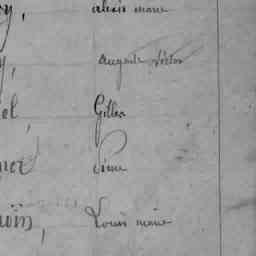 y, alexis marie
y, auguste Victor
el, Gilles
net Pierre
uin, Louis marie